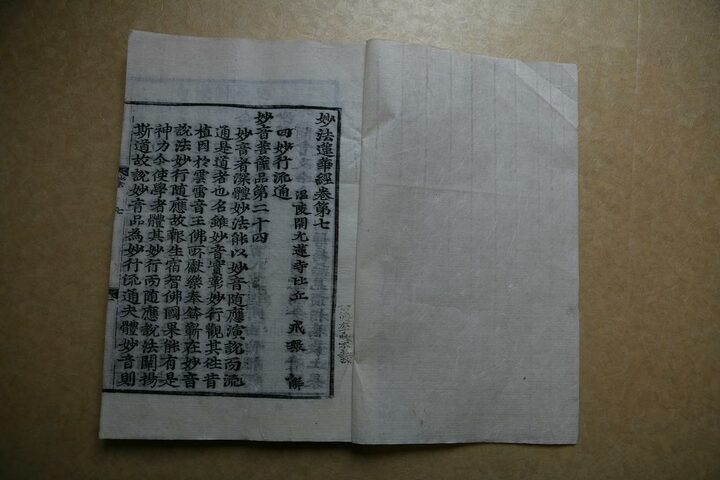 妙法蓮華經卷第七
溫陵開元蓮寺比丘 戒環 解
四妙行流通
妙音菩薩品第二十四
妙音者深體妙法能以妙音隨應演說而流
通是道者也名雖妙音實彰妙行觀其徃昔
植因於雲雷音王佛所獻樂奉鉢蘄在妙音
說法妙行隨應故報生宿智佛國果能有是
神力令使學者體其妙行而隨應說法闡揚
斯道故說妙音品為妙行流通夫體妙音則